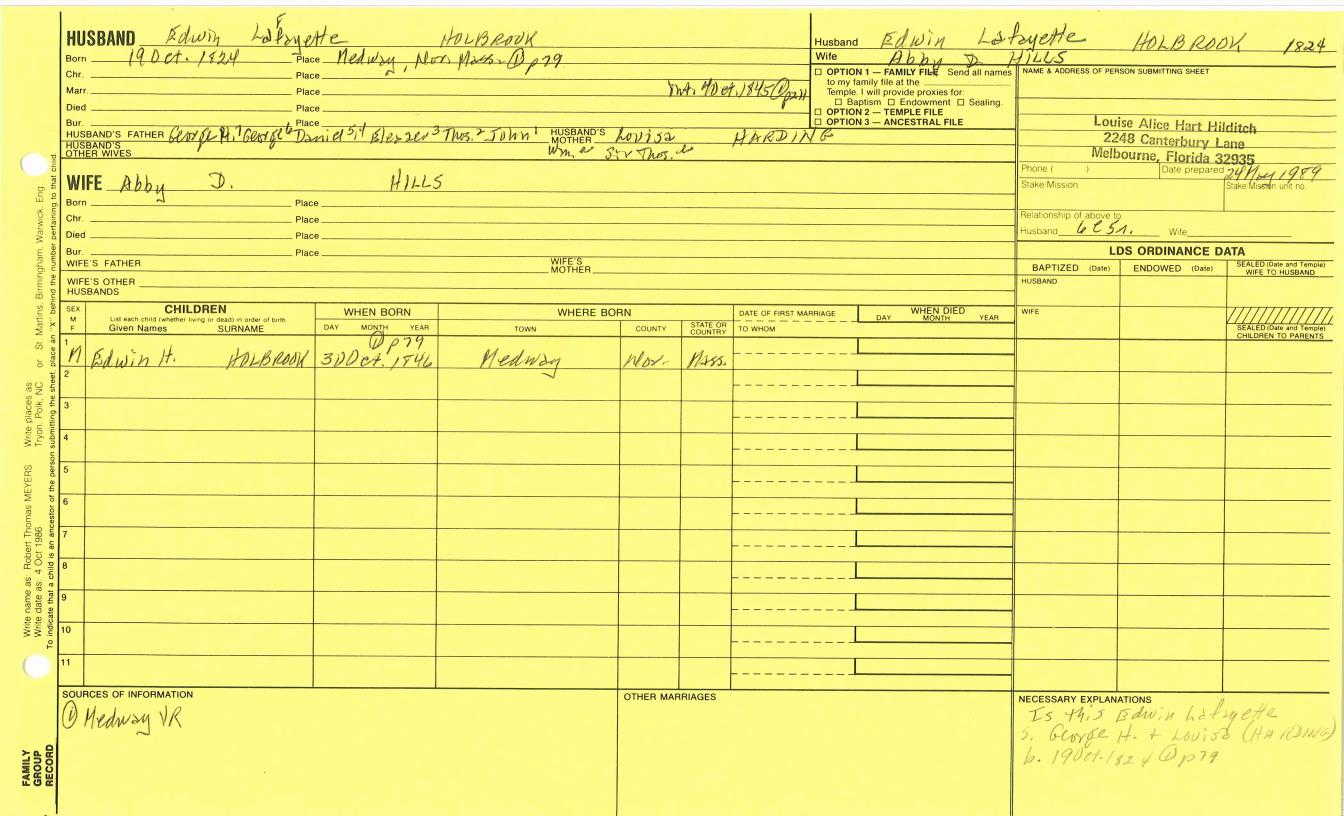 HUSBAND Edwin Lafayette HOLBROOK
F
Born 19 Oct. 1824 Place Medway, Nor. Mass. ① p79
Chr. Place
Marr. Place Int. 4 Oct. 1845 ①
Died Place
Bur. Place
HUSBAND'S FATHER George H. George 6 Daniel 5,4 Eliezer 3 Thos. 2 John 1 HUSBAND'S MOTHER Louisa HARDING
HUSBAND'S OTHER WIVES
Husband Edwin Lafayette HOLBROOK 1824
Wife Abby D. HILLS
☐ OPTION 1 — FAMILY FILE Send all names
to my family file at the
Temple. I will provide proxies for:
☐ Baptism ☐ Endowment ☐ Sealing.
☐ OPTION 2 — TEMPLE FILE
☐ OPTION 3 — ANCESTRAL FILE
NAME & ADDRESS OF PERSON SUBMITTING SHEET
Louise Alice Hart Hilditch
2248 Canterbury Lane
Melbourne, Florida 32935
Phone ( ) Date prepared 24 May 1989
Stake Mission Stake Mission unit no.
Relationship of above to
Husband 6C5r. Wife
WIFE Abby D. HILLS
Born Place
Chr. Place
Died Place
Bur. Place
WIFE'S FATHER WIFE'S MOTHER
WIFE'S OTHER HUSBANDS
LDS ORDINANCE DATA
BAPTIZED (Date) ENDOWED (Date) SEALED (Date and Temple) WIFE TO HUSBAND
HUSBAND
WIFE
SEALED (Date and Temple) CHILDREN TO PARENTS
SEX M F
CHILDREN
List each child (whether living or dead) in order of birth
Given Names SURNAME
WHEN BORN
DAY MONTH YEAR
WHERE BORN
TOWN COUNTY STATE OR COUNTRY
DATE OF FIRST MARRIAGE
TO WHOM
WHEN DIED
DAY MONTH YEAR
① p79
1 M Edwin H. HOLBROOK 30 Oct. 1846 Medway Nor. Mass.
2
3
4
5
6
7
8
9
10
11
SOURCES OF INFORMATION
① Medway VR
OTHER MARRIAGES
NECESSARY EXPLANATIONS
Is this Edwin Lafayette
s. George H. + Louisa (HARDING)
b. 19 Oct. 1824 ① p79
FAMILY GROUP RECORD
Write name as: Robert Thomas MEYERS Write places as Tryon, Polk, NC or St Martins, Birmingham, Warwick, Eng.
Write date as: 4 Oct 1986
To indicate that a child is an ancestor of the person submitting the sheet, place an "X" behind the number pertaining to that child.